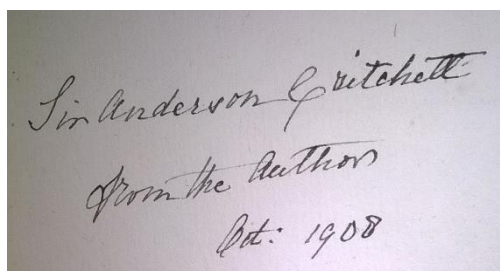 Sir Anderson Critchett
from the Author
Oct: 1908